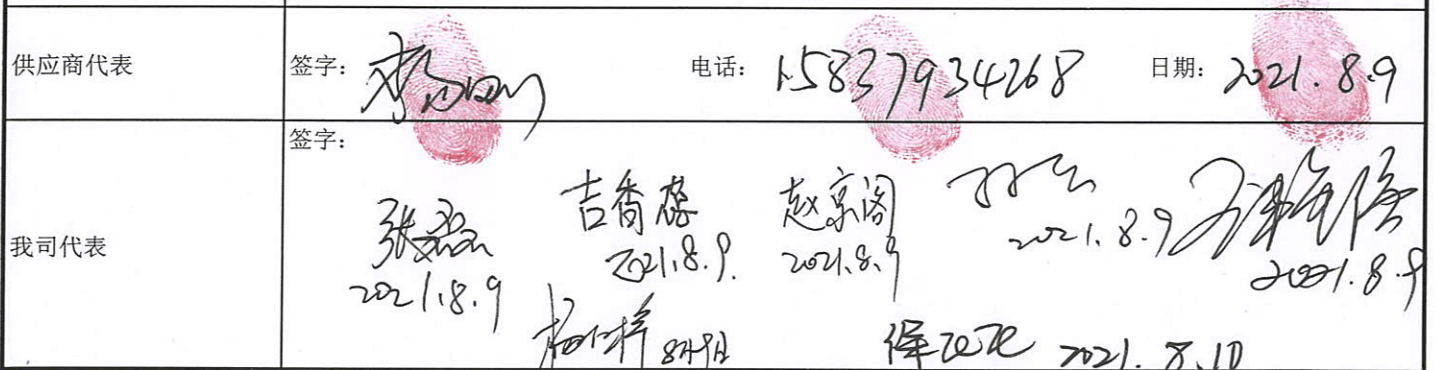 供应商代表 签字: 电话: 15837934268 日期: 2021.8.9
签字:
我司代表
张磊 吉香蕊 赵京阁
2021.8.9 2021.8.9. 2021.8.9 2021.8.9 2021.8.9
8月9日 2021.8.10